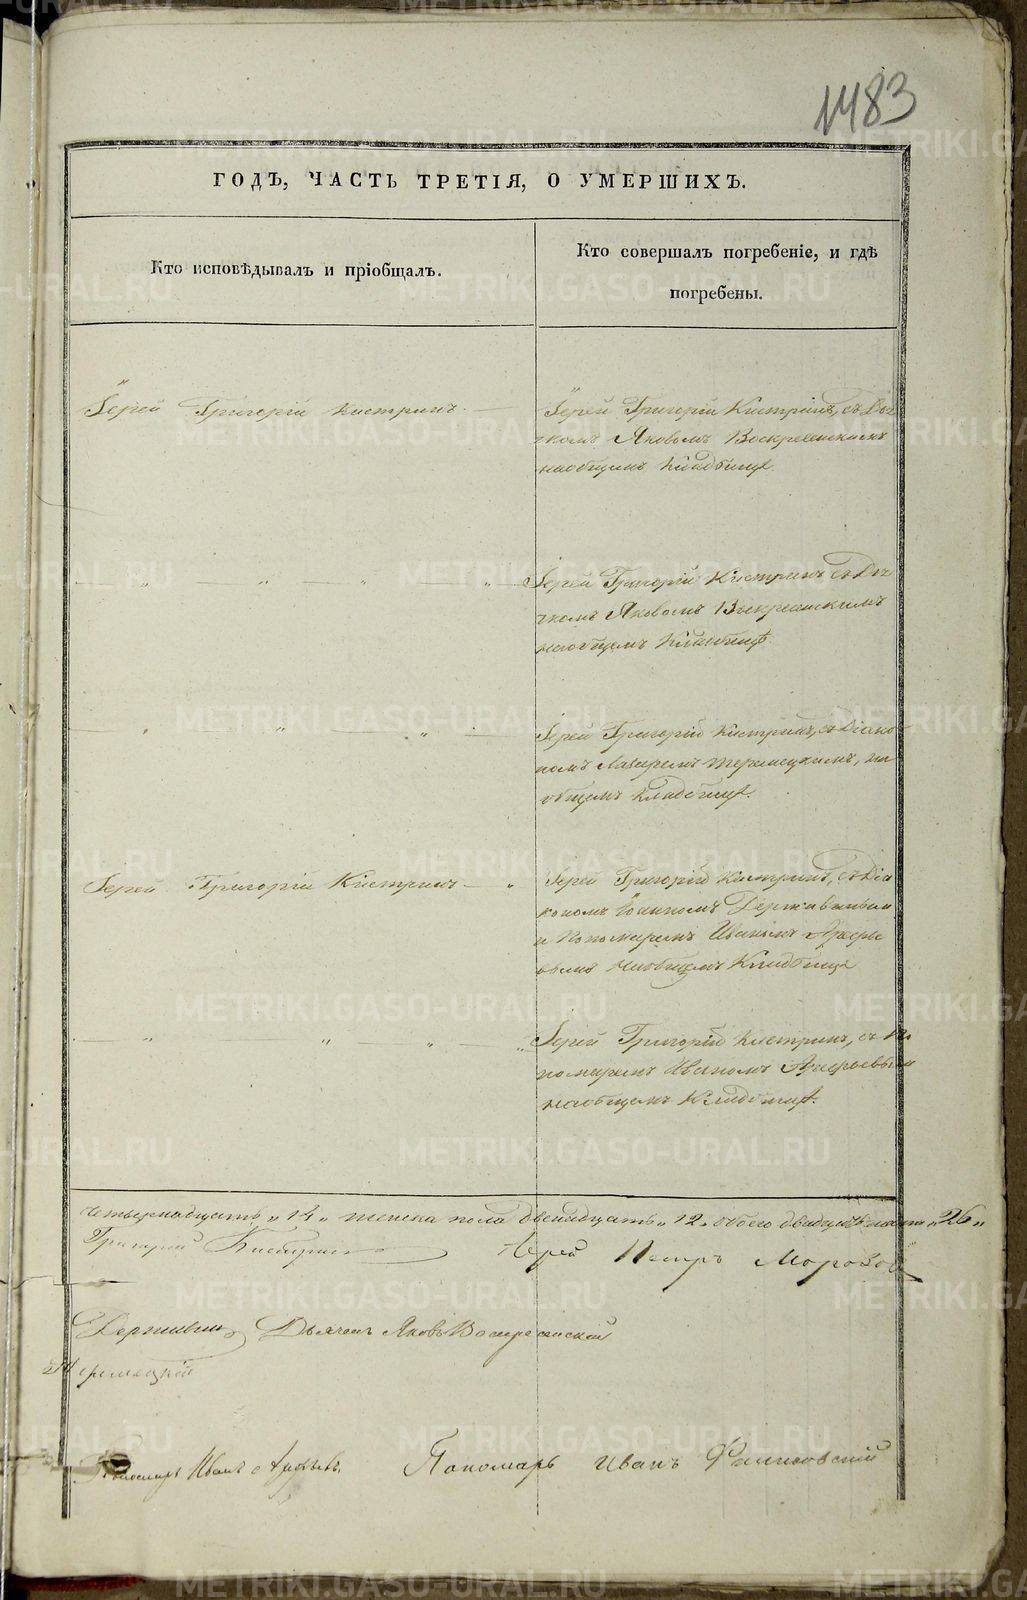 1483
ГОДЪ, ЧАСТЬ ТРЕТІЯ, О УМЕРШИХЪ.
Кто исповѣдывалъ и пріобщалъ.
Кто совершалъ погребеніе, и гдѣ
погребены.
Іерей Григорій Кистринъ.
Іерей Григорій Кистринъ, съ Дья-
чкомъ Яковомъ Воскресенскимъ
наобщемъ Кладбищѣ.
Іерей Григорій Кистринъ съ Дья-
чкомъ Яковомъ Воскресенскимъ
наобщемъ Кладбищѣ.
Іерей Григорій Кистринъ, съ Діако-
номъ Лазаремъ, на
общемъ Кладбищѣ.
Іерей Григорій Кистринъ
Іерей Григорій Кистринъ, съ Діа-
кономъ Іоанномъ Державинымъ
и Пономаремъ Иваномъ Арефье
вымъ наобщемъ Кладбище
Іерей Григорій Кистринъ, съ По
номаремъ Иваномъ Арефьевым
наобщемъ Кладбищѣ.
четырнадцать „14„ женска пола двенадцать „12„ обоего двадцать „26„
Григорій Кистринъ Іерей Петръ Морозов
Державинъ Дьячекъ Яковъ Воскресенскій
Пономарь Иванъ Арефьевъ. Пономарь Иванъ